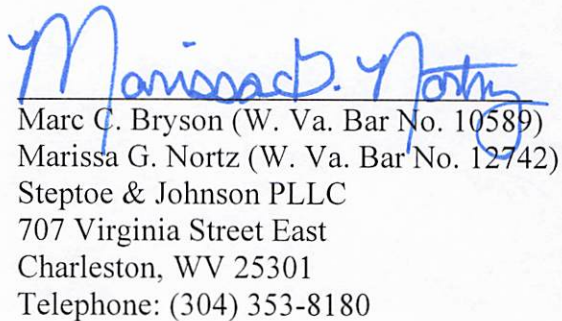 Marissa G. Nortz
Marc C. Bryson (W. Va. Bar No. 10589)
Marissa G. Nortz (W. Va. Bar No. 12742)
Steptoe & Johnson PLLC
707 Virginia Street East
Charleston, WV 25301
Telephone: (304) 353-8180